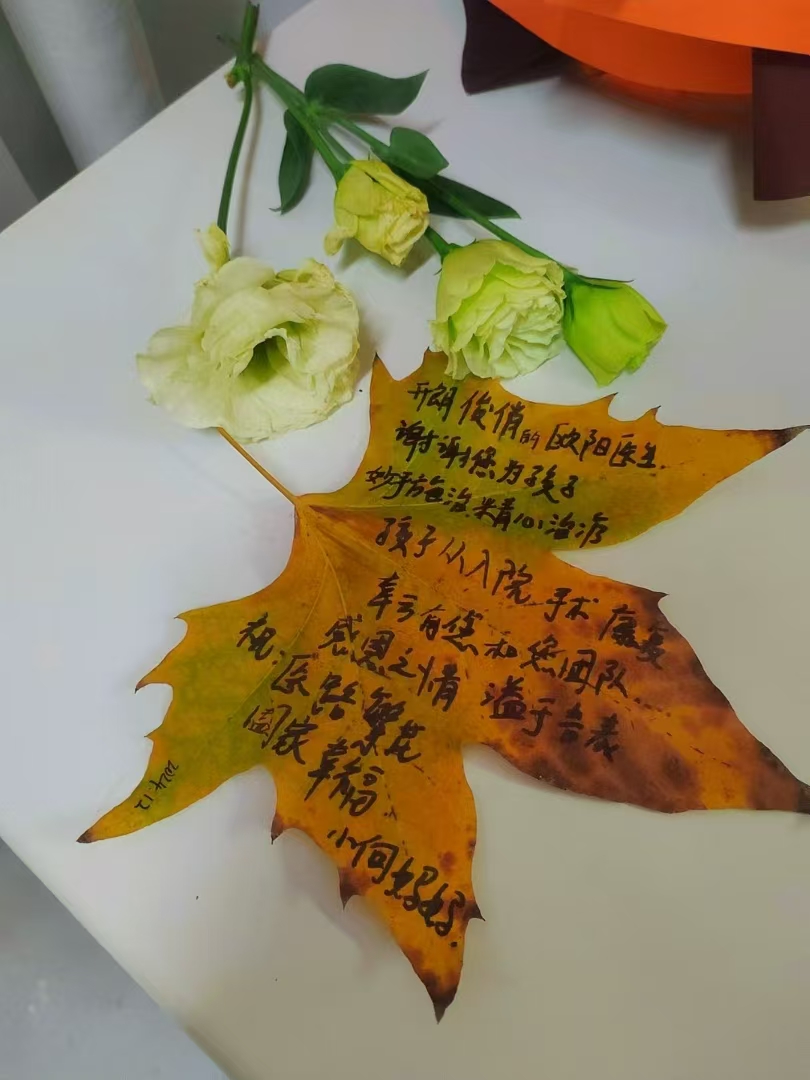 开朗俊俏的欧阳医生.
谢谢您为孩子
妙手施治 精心治疗
孩子从入院 手术 康复
幸亏有您和您团队…
感恩之情 溢于言表
祝:医路繁花
阖家幸福、
小何妈妈.
2024.12